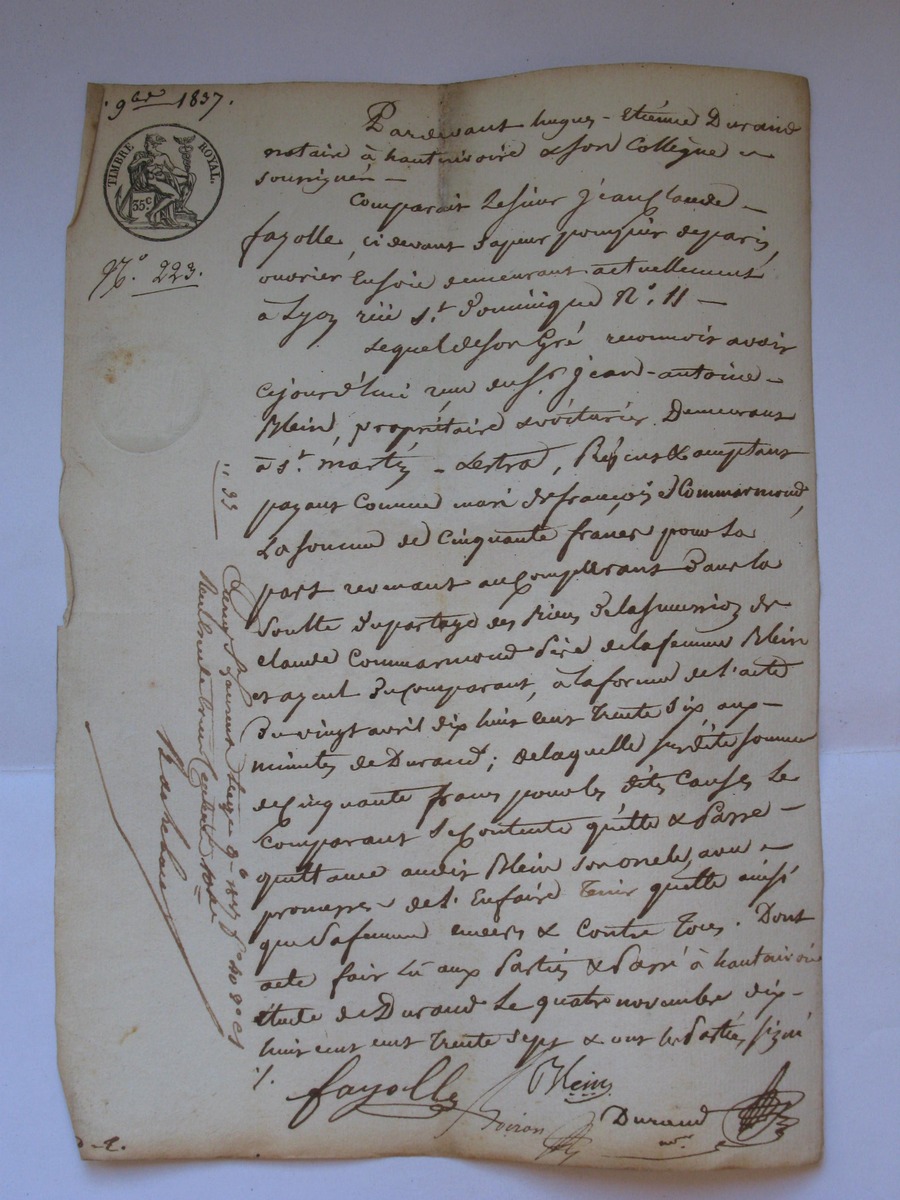 9bre 1837.
TIMBRE ROYAL.
35 c
N.o 223.
Pardevant hugues-Etiénne Durand
notaire à hauterivoire & son Collègue
soussignés
Comparait Le sieur jean Claude
fayolle, ci devant sapeur pompier de paris,
ouvrier En soie demeurant actuellement
à Lyon rüe st. Dominique N.o 11
Lequel de son Gré reconnoit avoir
cejourd'hui reçu du sr jean-antoine
Blein, propriétaire & voiturier Demeurant
à st. martin-Lestra, Présent & acceptant
payant Comme mari de françoise Commarmond,
La somme de Cinquante francs pour La
part revenant au Comparant Dans la
soulte Du partage des Biens De la succession de
claude Commarmond Père de la femme Blein
et ayeul Du Comparant, à la forme de l'acte
Du vingt avril dix huit cent trente six aux
minutes de Durand; de laquelle susdite somme
de Cinquante francs pour les dites Causes Le
Comparant se Contente quitte & Passe
quittance audit Blein son oncle, avec
promesse de l'En faire tenir quitte ainsi
que sa femme envers & Contre tous. Dont
acte fait Lû aux Parties & Passé à hauterivoire
étude de Durand Le quatre novembre dix-
huit cent cent trente sept & ont les Parties signé
fayolle
Blein
Durand